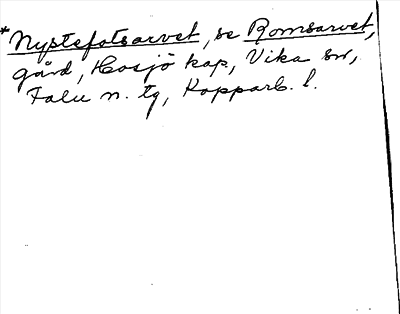 *Nystefotsarvet, se Romsarvet,
gård, Hosjö kap, Vika sn,
Falu n. tg, Kopparb. l.